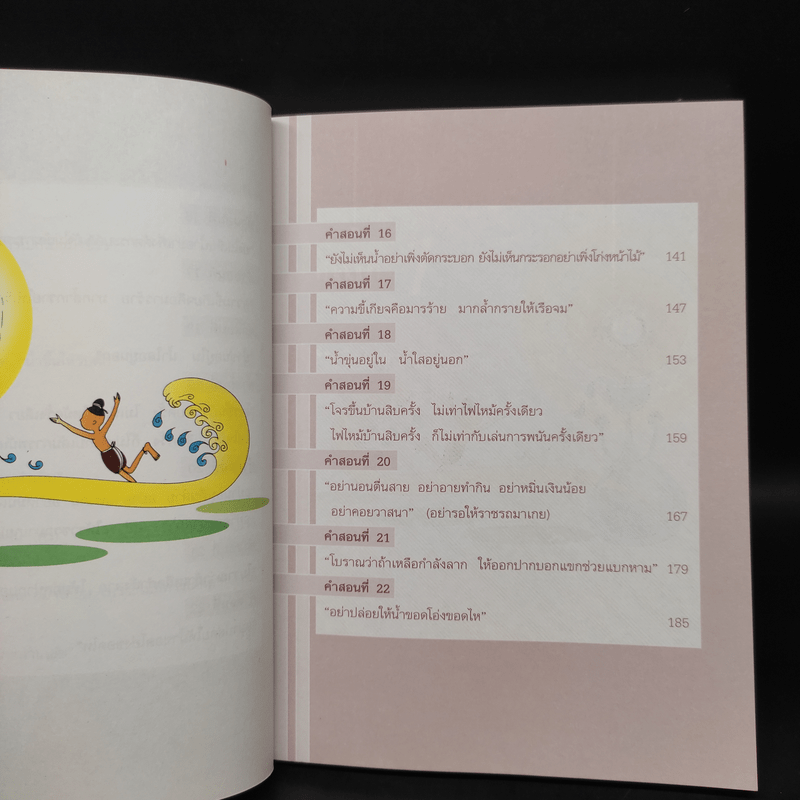 คำสอนที่ 16
“ยังไม่เห็นน้ำอย่าเพิ่งตัดกระบอก ยังไม่เห็นกระรอกอย่าเพิ่งโก่งหน้าไม้” 141
คำสอนที่ 17
“ความขี้เกียจคือมารร้าย มากล้ำกรายให้เรือจม” 147
คำสอนที่ 18
“น้ำขุ่นอยู่ใน น้ำใสอยู่นอก” 153
คำสอนที่ 19
“โจรขึ้นบ้านสิบครั้ง ไม่เท่าไฟไหม้ครั้งเดียว
ไฟไหม้บ้านสิบครั้ง ก็ไม่เท่ากับเล่นการพนันครั้งเดียว” 159
คำสอนที่ 20
“อย่านอนตื่นสาย อย่าอายทำกิน อย่าหมิ่นเงินน้อย
อย่าคอยวาสนา” (อย่ารอให้ราชรถมาเกย) 167
คำสอนที่ 21
“โบราณว่าถ้าเหลือกำลังลาก ให้ออกปากบอกแขกช่วยแบกหาม” 179
คำสอนที่ 22
“อย่าปล่อยให้น้ำขอดโอ่งขอดไห” 185